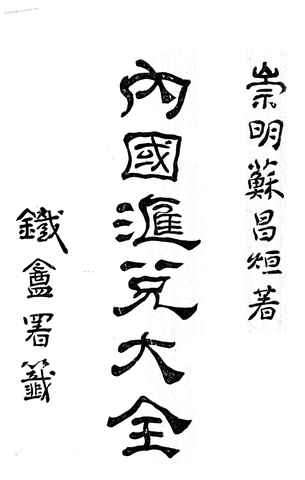 崇明蘇昌烜著
內國滙兌大全
鐵盦署籤